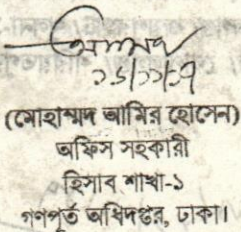 (মোহাম্মদ আমির হোসেন)
অফিস সহকারী
হিসাব শাখা-১
গণপূর্ত অধিদপ্তর, ঢাকা।